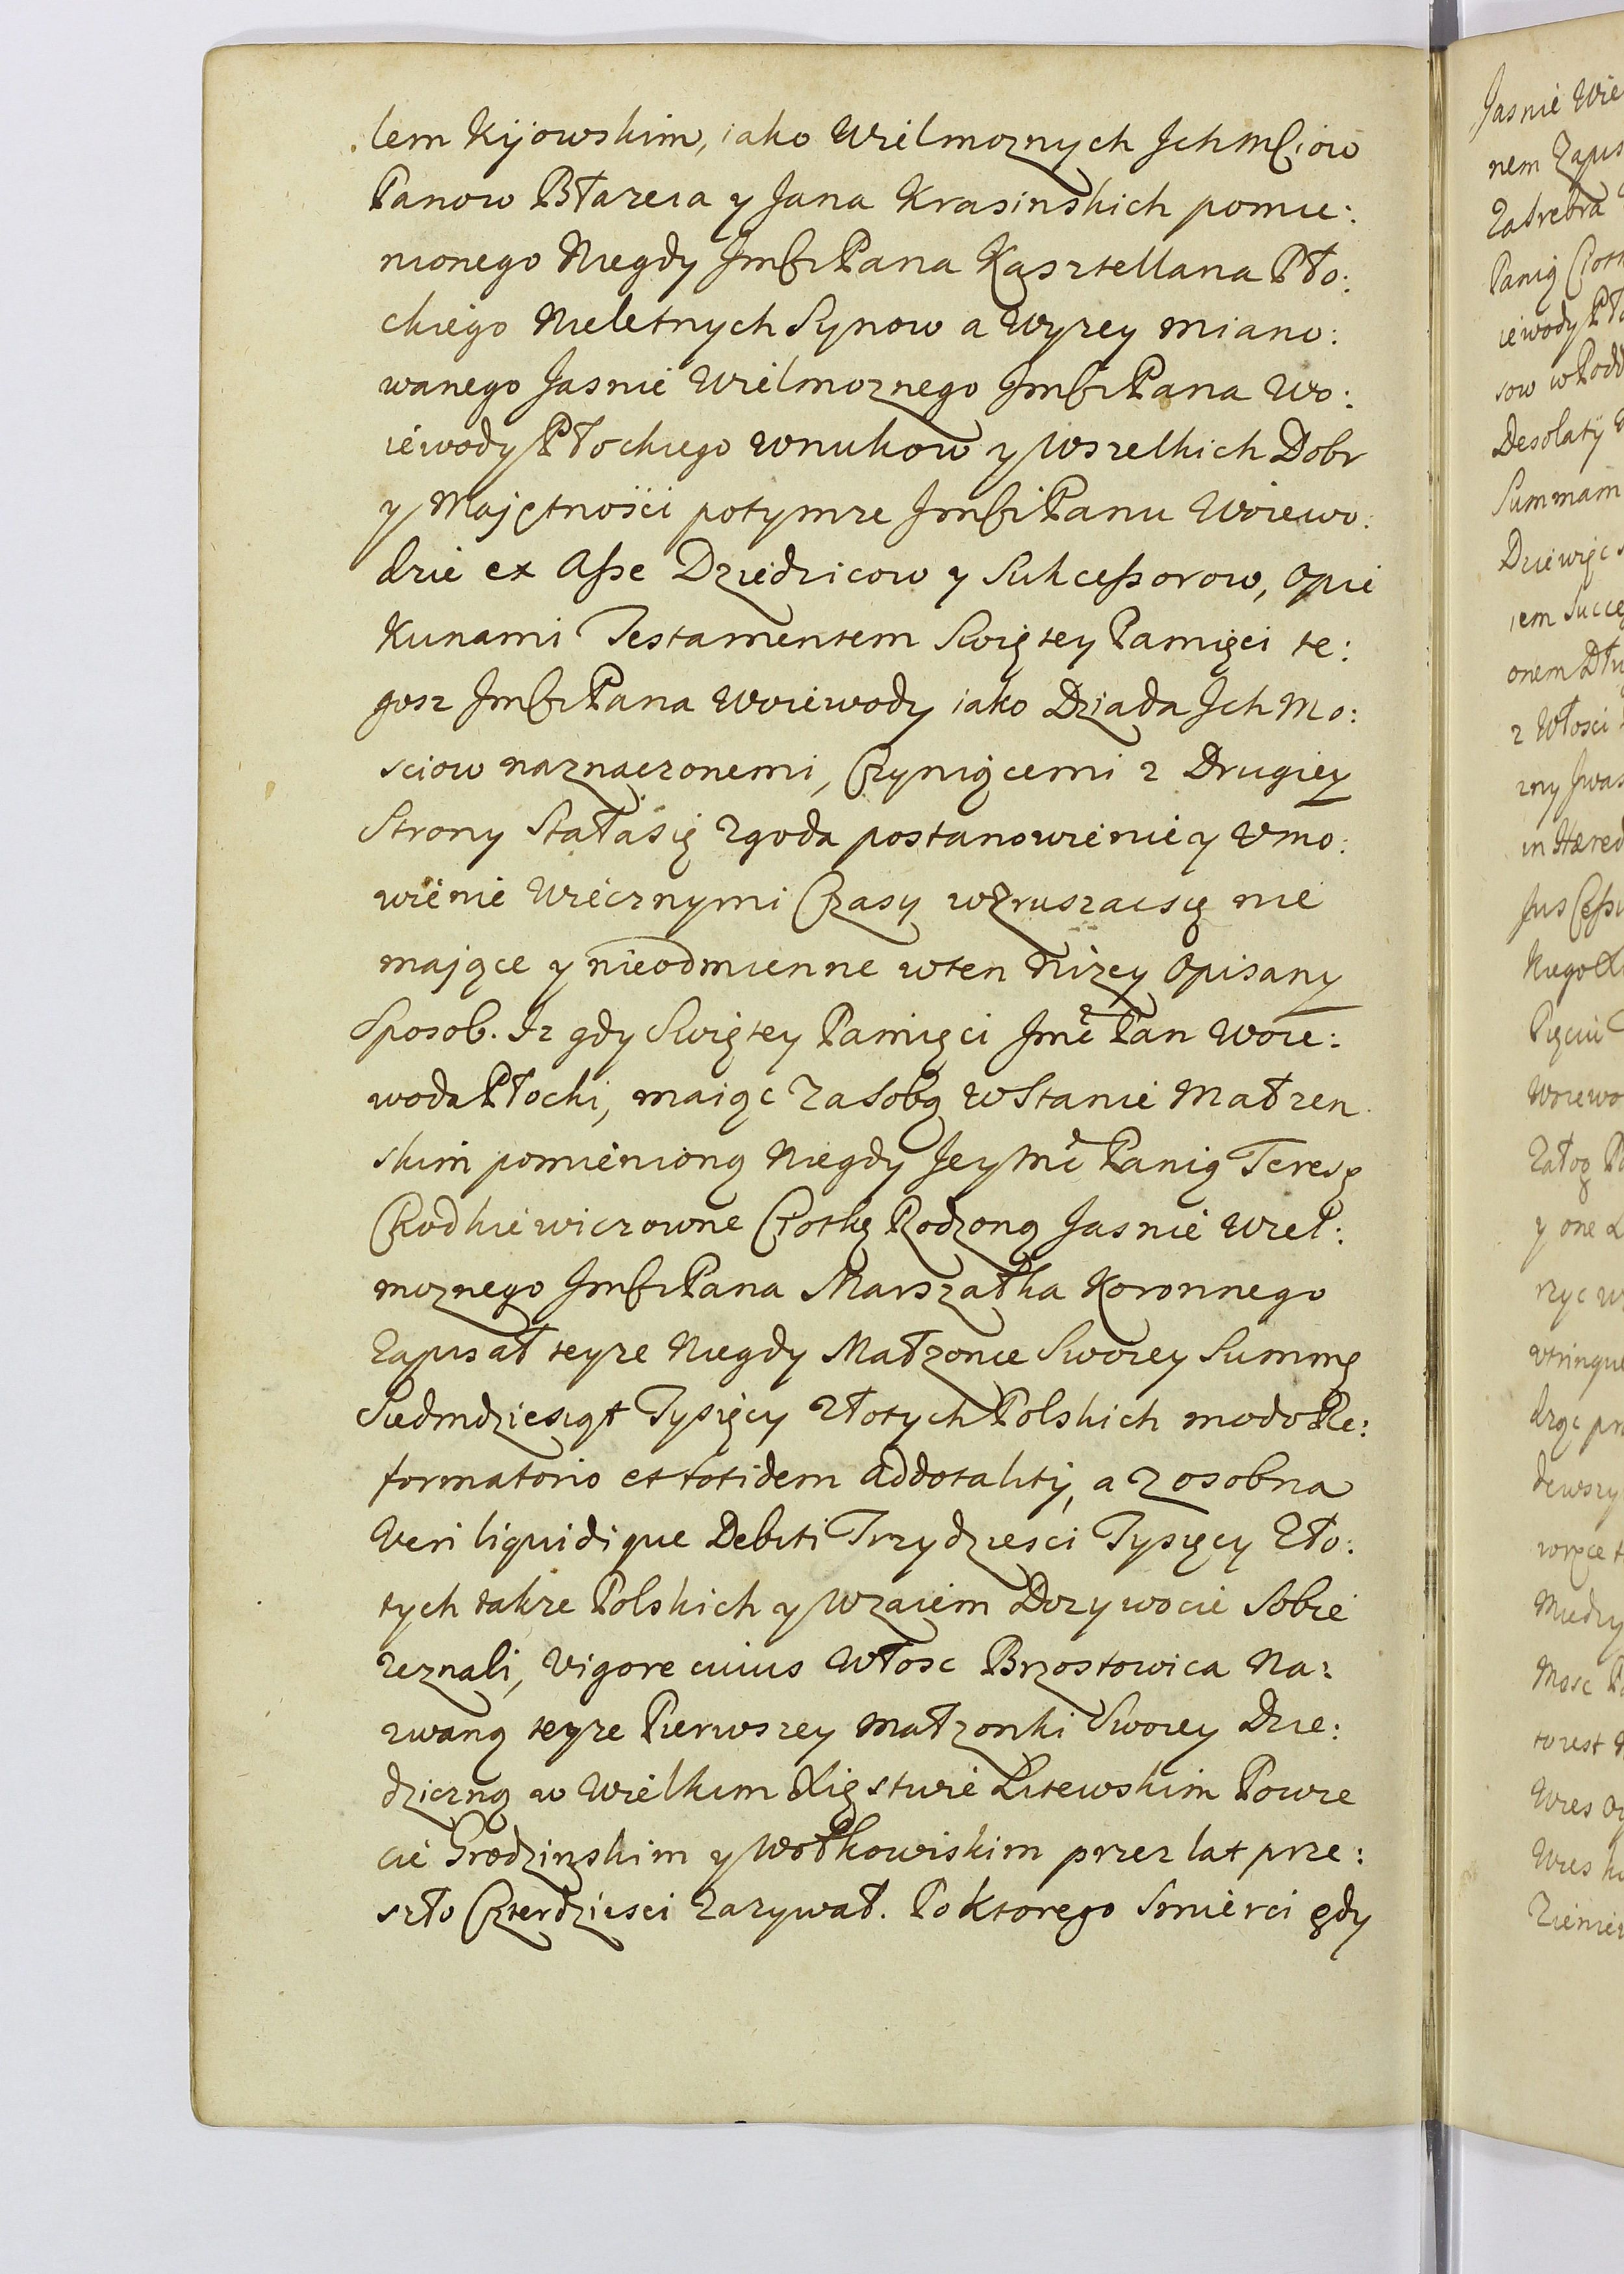 lem Kijowskim, iako Wielmoznych Ich Mściow
Panow Błażeia y Jana Krasinskich pomie:
nionego Niegdy Jmści Pana Kasztellana Pło:
ckiego Nieletnych Synow a Wyzey miano:
wanego Jasnie Wielmoznego Jmści Pana Wo:
iewody Płockiego wnukow y Wszelkich Dobr
y Majętności potymze Jmści Panu Woiewo:
dzie ex Asse Dziedzicow y Sukcessorow, Opie
Kunami Testamentem Swiętey Pamięci te:
gosz Jmści Pana Woiewody iako Dziada Ich Mo:
sciow naznaczonemi, Czyniącemi z Drugiey
Strony Stałasię zgoda postanowienie y Vmo:
wienie Wiecznymi Czasy wzruszacsię nie
mające y nieodmienne wten Nizey Opisany
Sposob. Iz gdy Swiętey Pamięci Jmć Pan Woie:
woda Płocki, maiąc Zasobą w Stanie Małzen
skim pomienioną Niegdy Jey Mć Panią Teresę
Chodkiewiczowne Ciotkę Rodzoną Jasnie Wiel:
moznego Jmści Pana Marszałka Koronnego
Zapisał teyze Niegdy Małzonce Swoiey Summę
Siedmdziesiąt Tysięcy Złotych Polskich modo Re:
formatorio et totidem addotality, a zosobna
Veri liquidique Debiti Trzydziesci Tysięcy Zło:
tych takze Polskich y Wzaiem Dozywocie Sobie
zeznali, Vigore cuius Włosc Brzostowica Na:
zwaną teyze Pierwszey małzonki Swoiey Dzie:
dziczną w Wielkim Xięstwie Litewskim Powie
cie Grodzinskim y Wołkowiskim przez lat prze:
szło Czterdziesci Zazywał. Po Ktorego Smierci gdy
Jasnie Wie
nem Zapis
Zasrebra
Panią Ciotk
iewody Pło
sow w Podd
Desolaty
Summam
Dziewięc
iem Succe
onem Dłu
z Włosci
zny Jwas
in Hæred
Jus Cessi
Kiego
Pięciu
Woiewo
Załog
y one
rzyc w
vtrinque
drąc pr
dewszy
Miedzy
Mosc
to iest
Wies
Wies
Zieniew